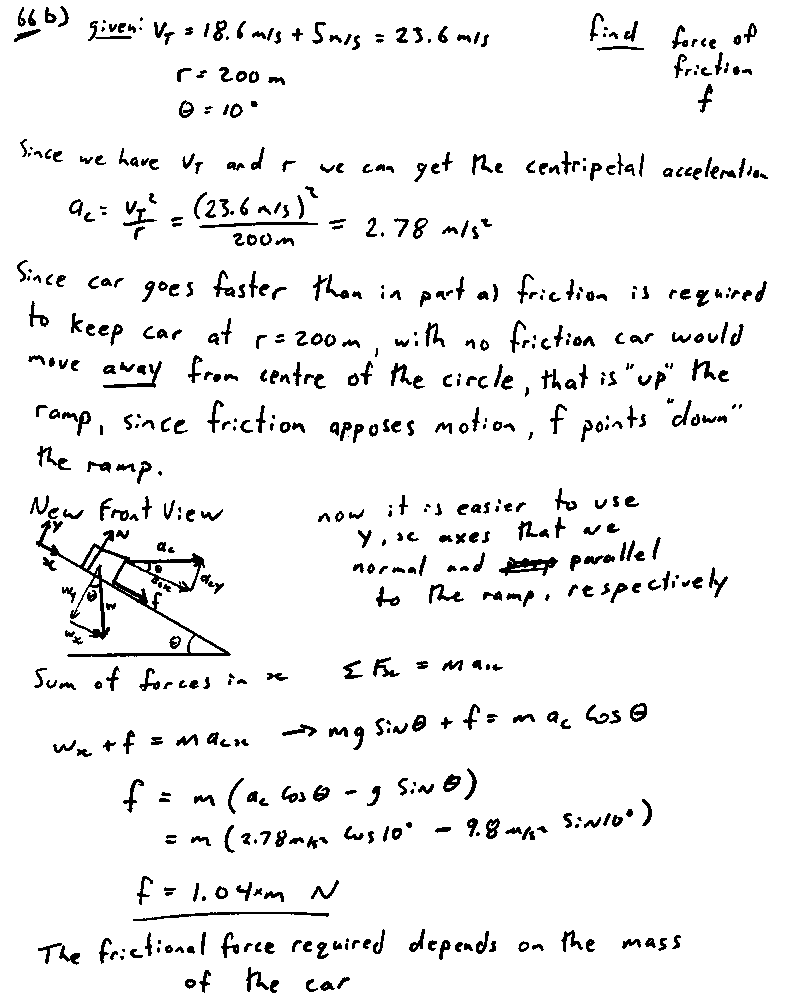 66 b) given: V_T = 18.6 m/s + 5 m/s = 23.6 m/s find force of friction f
r = 200 m
θ = 10°
Since we have V_T and r we can get the centripetal acceleration
a_c = V_T²/r = (23.6 m/s)²/200m = 2.78 m/s²
Since car goes faster than in part a) friction is required
to keep car at r = 200m, with no friction car would
move away from centre of the circle, that is "up" the
ramp, since friction apposes motion, f points "down"
the ramp.
New Front View
now it is easier to use
y, x axes that are
normal and parallel
to the ramp, respectively
y x N a_c θ a_cx a_cy f w_y θ w w_x θ
Sum of forces in x Σ F_x = m a_x
w_x + f = m a_cx → mg sinθ + f = m a_c cosθ
f = m (a_c cosθ - g sinθ)
= m (2.78 m/s² cos10° - 9.8 m/s² sin10°)
f = 1.04×m N
The frictional force required depends on the mass
of the car